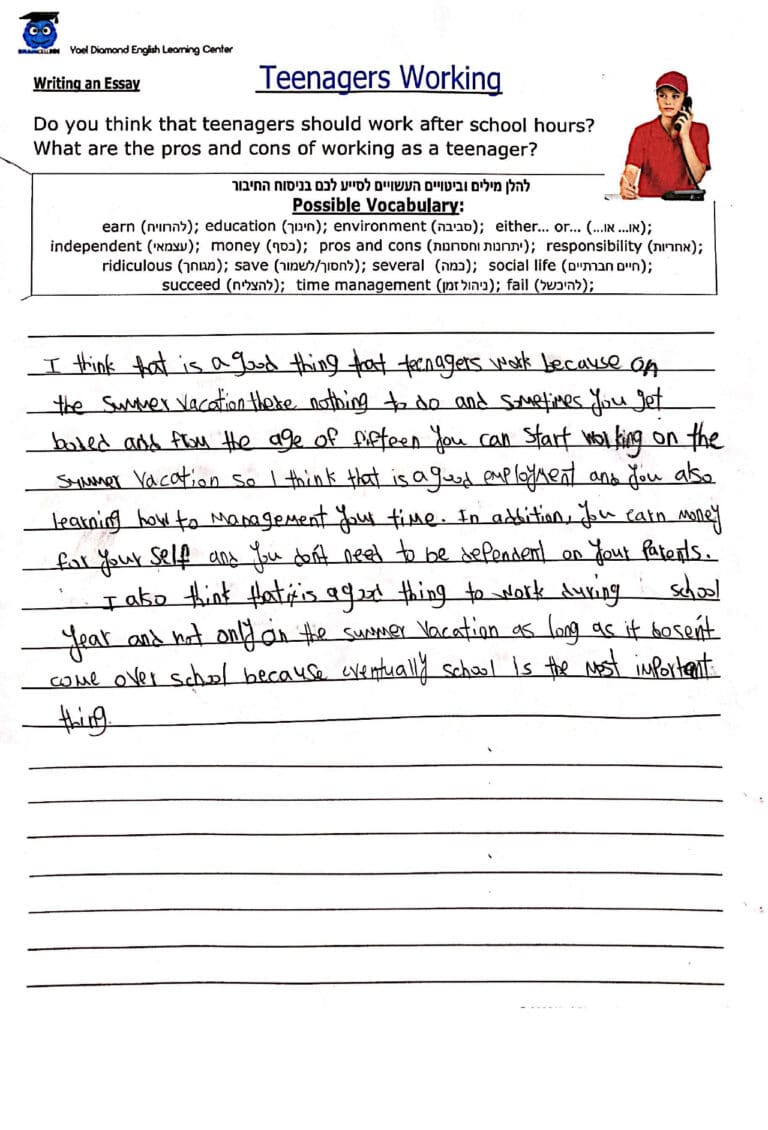 Yael Diamond English Learning Center
Writing an Essay
Teenagers Working
Do you think that teenagers should work after school hours?
What are the pros and cons of working as a teenager?
להלן מילים וביטויים העשויים לסייע לכם בניסוח החיבור
Possible Vocabulary:
earn (להרוויח); education (חינוך); environment (סביבה); either... or... (או... או...);
independent (עצמאי); money (כסף); pros and cons (יתרונות וחסרונות); responsibility (אחריות);
ridiculous (מגוחך); save (לחסוך/לשמור); several (כמה); social life (חיים חברתיים);
succeed (להצליח); time management (ניהול זמן); fail (להיכשל);
I think that is a good thing that teenagers work because on
the summer vacation there nothing to do and sometimes you get
bored and from the age of fifteen you can start working on the
summer vacation so I think that is a good employment and you also
learning how to management your time. In addition, you earn money
for your self and you don't need to be dependent on your parents.
I also think that it is a good thing to work during school
year and not only on the summer vacation as long as it dosen't
come over school because eventually school is the most important
thing.